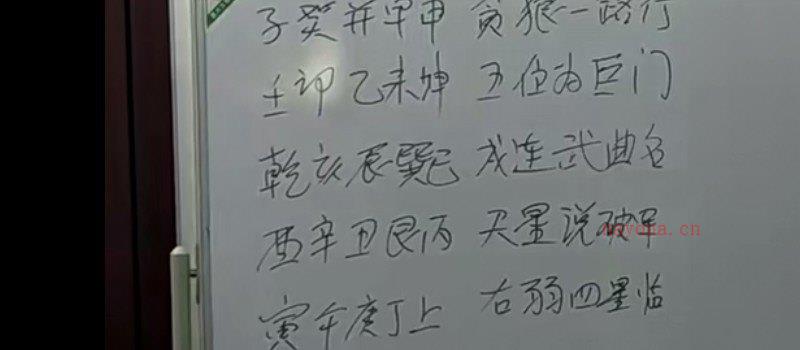 子癸并甲申 贪狼一路行
壬卯乙未坤 五位为巨门
乾亥辰巽巳 戌连武曲名
酉辛丑艮丙 天星说破军
寅午庚丁上 右弼四星临